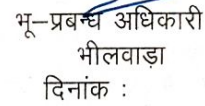 भू–प्रबन्ध अधिकारी
भीलवाड़ा
दिनांक :